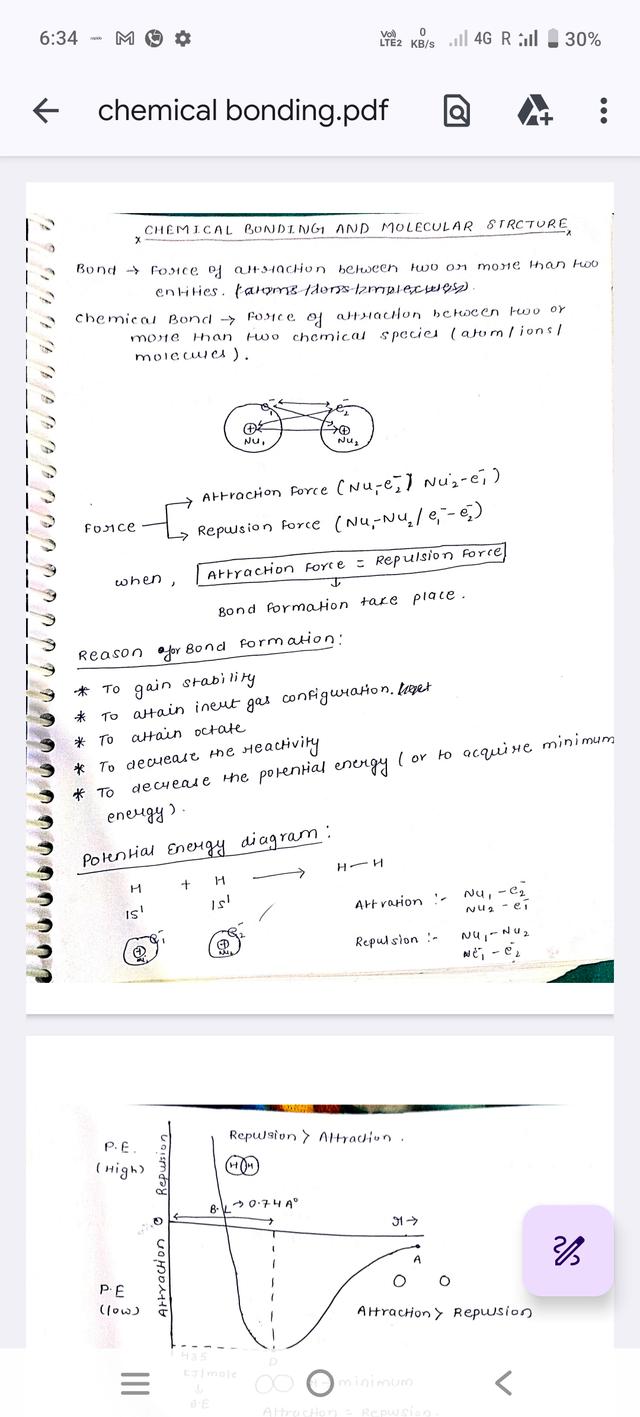 6:34
Vo)) LTE2 0 KB/s 4G R 30%
chemical bonding.pdf
CHEMICAL BONDING AND MOLECULAR STRCTURE
Bond → Force of attraction between two or more than two
entities. (atoms/ions/molecules).
Chemical Bond → Force of attraction between two or
more than two chemical species (atom/ions/
molecules).
e₁⁻ e₂⁻
⊕ ⊕
Nu₁ Nu₂
Attraction Force (Nu₁-e₂⁻] Nu₂-e₁⁻)
Force
Repulsion Force (Nu₁-Nu₂/e₁⁻-e₂⁻)
when, Attraction Force = Repulsion Force
↓
Bond Formation take place.
Reason for Bond Formation:
* To gain stability
* To attain inert gas configuration.
* To attain octate
* To decrease the reactivity
* To decrease the potential energy (or to acquire minimum
energy).
Potential Energy diagram:
H + H ⟶ H—H
1S¹ 1S¹
Attration :- Nu₁-e₂⁻
Nu₂-e₁⁻
Repulsion :- Nu₁-Nu₂
e₁⁻-e₂⁻
Repulsion > Attraction.
P.E.
(High)
Repulsion
H H
B.L → 0.74A°
0
r→
A
Attraction
P.E
(low)
Attraction > Repulsion
435 D
KJ/mole
↓ minimum
B.E
Attraction = Repulsion.